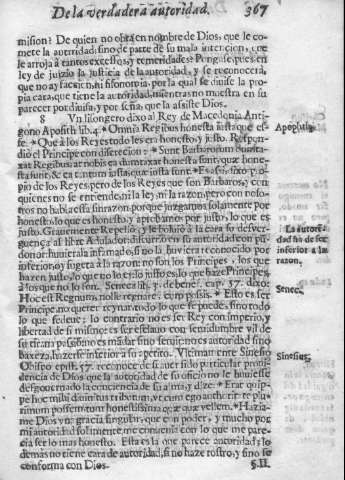 De la verdadera autoridad. 367
mision? De quien no obra en nombre de Dios, que le co-
mete la autoridad, sino de parte de su mala intencion, que
le arroja à tantos excessos, y temeridades? Pongase pues en
ley de juizio la justicia de la autoridad, y se reconocerà,
que no ay facil fisonomia, por la qual se diuise la pro-
pia cara, que tiene la autoridad, mientras no muestra en su
parecer que diuisa, y por seña, que la assiste Dios.
8 Vn lisongero dixo al Rey de Macedonia Anti-
gono Apophth lib. 4. * Omnia Regibus honesta iusta que es-
se. * Que à los Reyes todo les era honesto, y justo. Respon-
diò el Principe con discrecion: * Sunt Barbarorum dumta-
xat Regibus: at nobis ea dumtaxat honesta sunt, quæ hone-
sta sunt, & ea tantum iusta, quæ iusta sunt. * Esso, dixo, pro-
pio de los Reyes, pero de los Reyes que son Barbaros, y con
quienes no se entiende, ni la ley, ni la razon, pero con noso-
tros no habla essa sinrazon, porque juzgamos solamente por
honesto, lo que es honesto, y aprobamos por justo, lo que es
justo. Grauemente Repelió, y le boluiò à la cara su desver-
guença al libre Adulador,
donor: huuierala infamado, si no la huuiera reconocido por
inferior, y sugeta à la razon: no son los Principes, los que
hazen justo, lo que no lo es: lo justo es, lo que haze Principes,
à los que no lo son. Seneca lib. 7. de benef. cap. 37. dixo:
Hoc est Regnum, nolle regnare, cum possis. * Esto es ser
Principe: no querer reynar todo lo que se puede, sino todo
lo que se deue; lo contrario no es ser Rey con imperio, y
libertad de si mismo: es ser esclauo con seruidumbre vil de
su tirana passion: no es mãdar sino seruir; no es autoridad sino
baxeza, hazerse inferior à su apetito. Vltimamente Sinesio
Obispo epist. 57. reconoce de auer sido particular proui-
dencia de Dios que la autoridad de su oficio no le huuiesse
desquiciado la conciencia de su alma, y dize: * Erat quip-
pe hoc mihi diuinitus tributum, vt cum ego authoritate plu-
rimum possem, tum honestissima quæque vellem. * Hazia-
me Dios vna gracia singular, que con poder, y mucho por
mi autoridad solamente, me contenia con lo que me pare-
cia ser lo mas honesto. Esta es la que parece autoridad; y lo
demàs no tiene cara de autoridad, si no haze rostro, y sino se
conforma con Dios. §. II.
Apophth.
La autori-
dad ha de ser
inferior a la
razon.
Senec.
Sinesius.